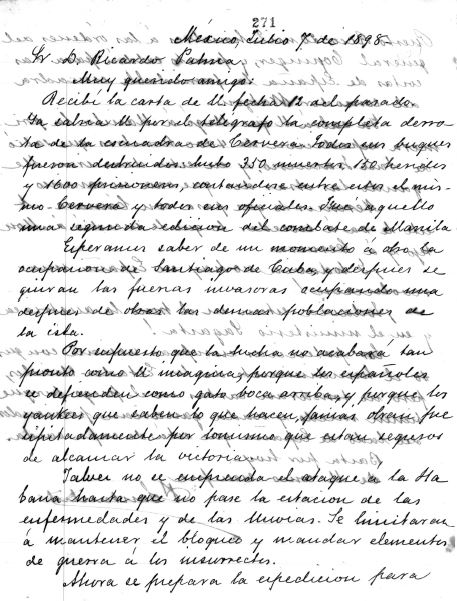 271
México, Julio 7 de 1898
Sr D. Ricardo Palma
Muy querido amigo:
Recibí la carta de U. fecha 12 del pasado.
Ya sabrá U por el telégrafo la completa derro-
ta de la escuadra de Cervera. Todos sus buques
fueron destruidos, hubo 350 muertos, 150 heridos
y 1600 prisioneros, contandose entre estos el mis-
mo Cervera y todos sus oficiales. Fué aquello
una segunda edicion del combate de Manila
Esperamos saber de un momento á otro la
ocupacion de Santiago de Cuba, y despues se-
guiran las fuerzas invasoras ocupando una
despues de otras las demas poblaciones de
la isla.
Por supuesto que la lucha no acabará tan
pronto como U imagina, porque los españoles
se defienden como gato boca arriba, y porque los
yankees que saben lo que hacen, jamas obran pre
cipitadamente por lo mismo que estan seguros
de alcanzar la victoria.
Talvez no se emprenda el ataque a la Ha
bana hasta que no pase la estacion de las
enfermedades y de las lluvias. Se limitaran
á mantener el bloqueo y mandar elementos
de guerra á los insurrectos.
Ahora se prepara la espedicion para